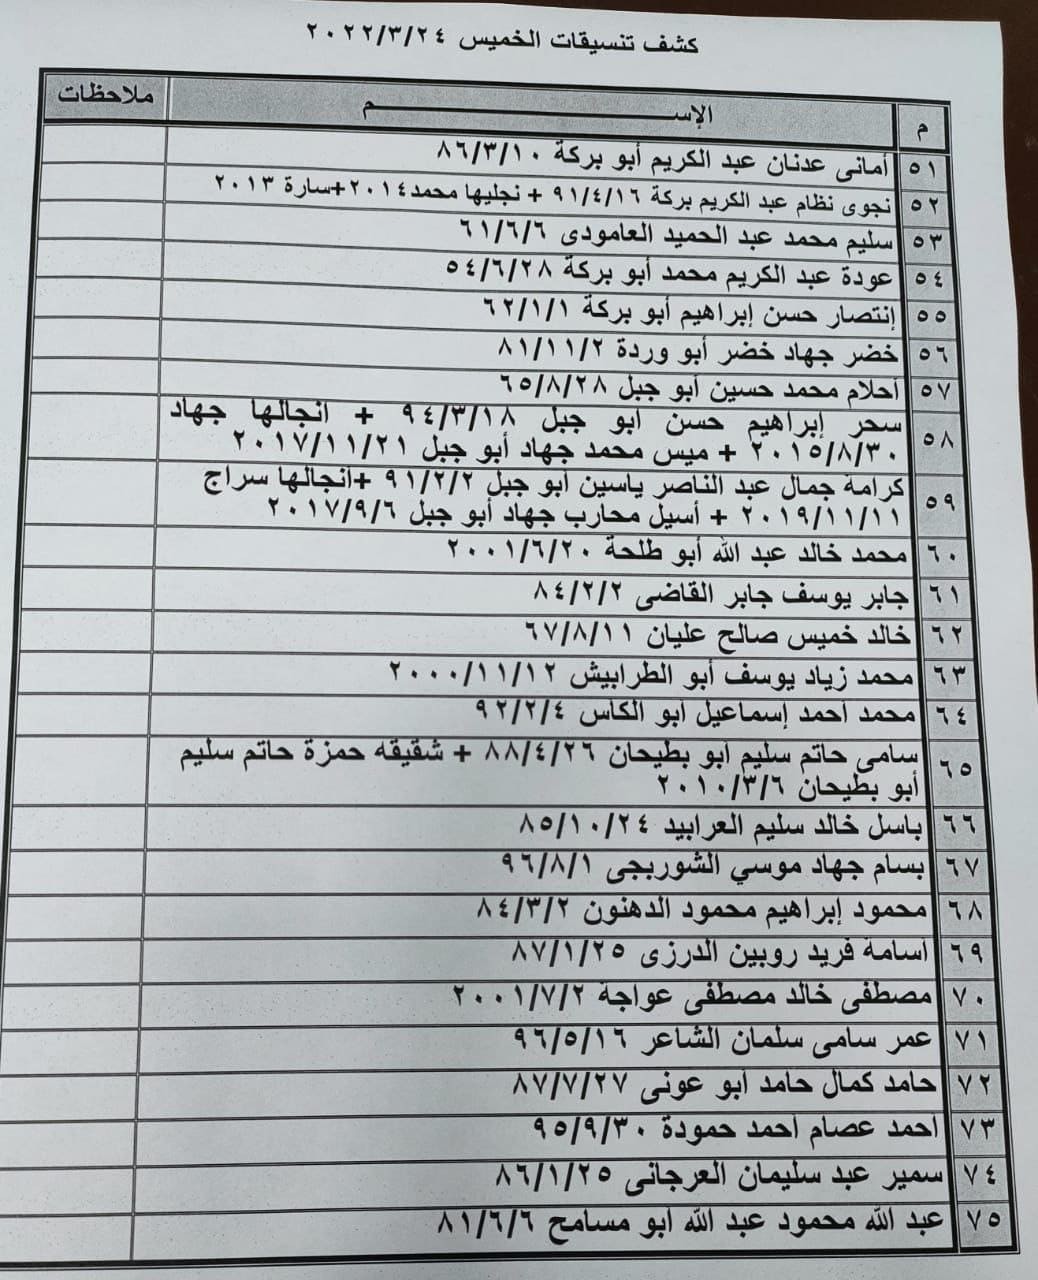 كشف تنسيقات الخميس ٢٠٢٢/٣/٢٤
م الإســـــــم ملاحظات
٥١ أمانى عدنان عبد الكريم أبو بركة ٨٦/٣/١٠
٥٢ نجوى نظام عبد الكريم بركة ٩١/٤/١٦ + نجليها محمد٢٠١٤+سارة ٢٠١٣
٥٣ سليم محمد عبد الحميد العامودى ٦١/٦/٦
٥٤ عودة عبد الكريم محمد أبو بركة ٥٤/٦/٢٨
٥٥ إنتصار حسن إبراهيم أبو بركة ٦٢/١/١
٥٦ خضر جهاد خضر أبو وردة ٨١/١١/٢
٥٧ أحلام محمد حسين أبو جبل ٦٥/٨/٢٨
٥٨ سحر إبراهيم حسن أبو جبل ٩٤/٣/١٨ + أنجالها جهاد
٢٠١٥/٨/٣٠ + ميس محمد جهاد أبو جبل ٢٠١٧/١١/٢١
٥٩ كرامة جمال عبد الناصر ياسين أبو جبل ٩١/٢/٢ +أنجالها سراج
٢٠١٩/١١/١١ + أسيل محارب جهاد أبو جبل ٢٠١٧/٩/٦
٦٠ محمد خالد عبد الله أبو طلحة ٢٠٠١/٦/٢٠
٦١ جابر يوسف جابر القاضى ٨٤/٢/٢
٦٢ خالد خميس صالح عليان ٦٧/٨/١١
٦٣ محمد زياد يوسف أبو الطرابيش ٢٠٠٠/١١/١٢
٦٤ محمد أحمد إسماعيل أبو الكاس ٩٢/٢/٤
٦٥ سامى حاتم سليم أبو بطيحان ٨٨/٤/٢٦ + شقيقه حمزة حاتم سليم
أبو بطيحان ٢٠١٠/٣/٦
٦٦ باسل خالد سليم العرابيد ٨٥/١٠/٢٤
٦٧ بسام جهاد موسي الشوربجى ٩٦/٨/١
٦٨ محمود إبراهيم محمود الدهنون ٨٤/٣/٢
٦٩ أسامة فريد روبين الدرزى ٨٧/١/٢٥
٧٠ مصطفى خالد مصطفى عواجة ٢٠٠١/٧/٢
٧١ عمر سامى سلمان الشاعر ٩٦/٥/١٦
٧٢ حامد كمال حامد أبو عونى ٨٧/٧/٢٧
٧٣ أحمد عصام أحمد حمودة ٩٥/٩/٣٠
٧٤ سمير عبد سليمان العرجانى ٨٦/١/٢٥
٧٥ عبد الله محمود عبد الله أبو مسامح ٨١/٦/٦